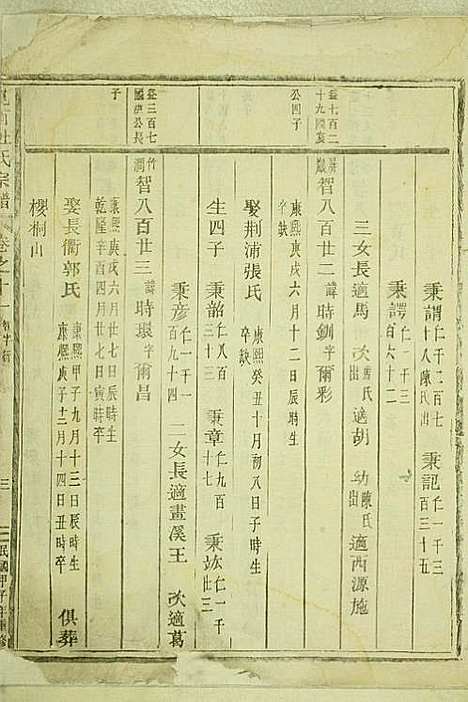 秉謂 仁一千二百七十八陳氏出 秉記 仁一千三百三十五
秉諤 仁一千三百六十二
三女長適馬 次 出 適胡 幼 陳氏出 適西源施
益七百二十九
公四子
智八百廿二 諱 時釧 字 爾彩
康熙庚戌六月十二日辰時生
卒缺
娶荆浦張氏 康熙癸丑十月初八日子時生 卒缺
生四子 秉韶 仁八百三十三 秉章 仁九百十七 秉竑 仁一千廿三
秉彥 仁一千一百九十四 二女長適畫溪王 次適葛
益三百七 公長
子
智八百廿三 諱 時環 字 爾昌
康熙庚戌六月廿七日辰時生
乾隆辛酉四月廿七日寅時卒
娶長衢郭氏 康熙甲子九月十三日辰時生 康熙庚子十二月十四日丑時卒 俱葬
櫻桐山
杜氏宗譜 卷之十一 智字行 三 民國甲子年重修